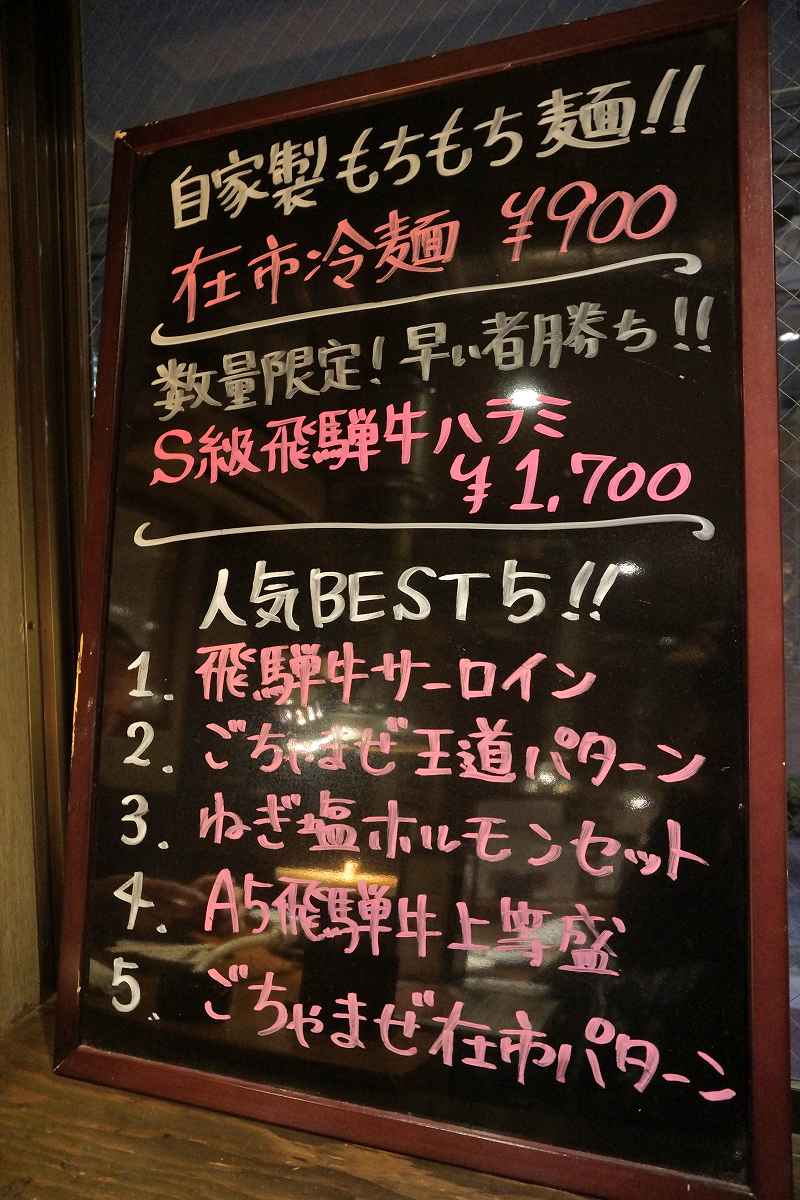 自家製もちもち麺!!
在市冷麺 ¥900
数量限定!早い者勝ち!!
S級飛騨牛ハラミ
¥1,700
人気BEST5!!
1. 飛騨牛サーロイン
2. ごちゃまぜ王道パターン
3. ねぎ塩ホルモンセット
4. A5飛騨牛上等盛
5. ごちゃまぜ在市パターン